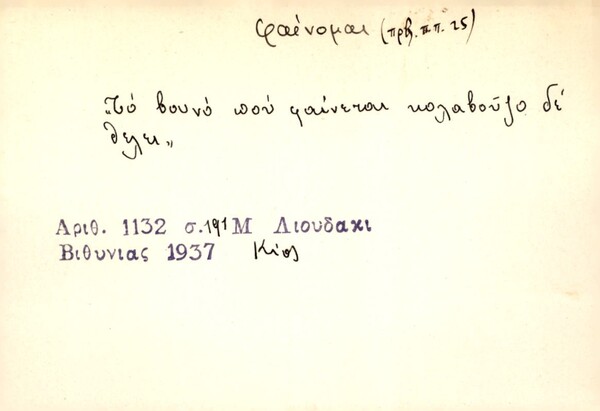 φαίνομαι (πρβ. π.π. 25)
"Τό βουνό πού φαίνεται κολαβοῦζο δέ
θελει„
Αριθ. 1132 σ. 191 Μ Λιουδακι
Βιθυνιας 1937 Κίος